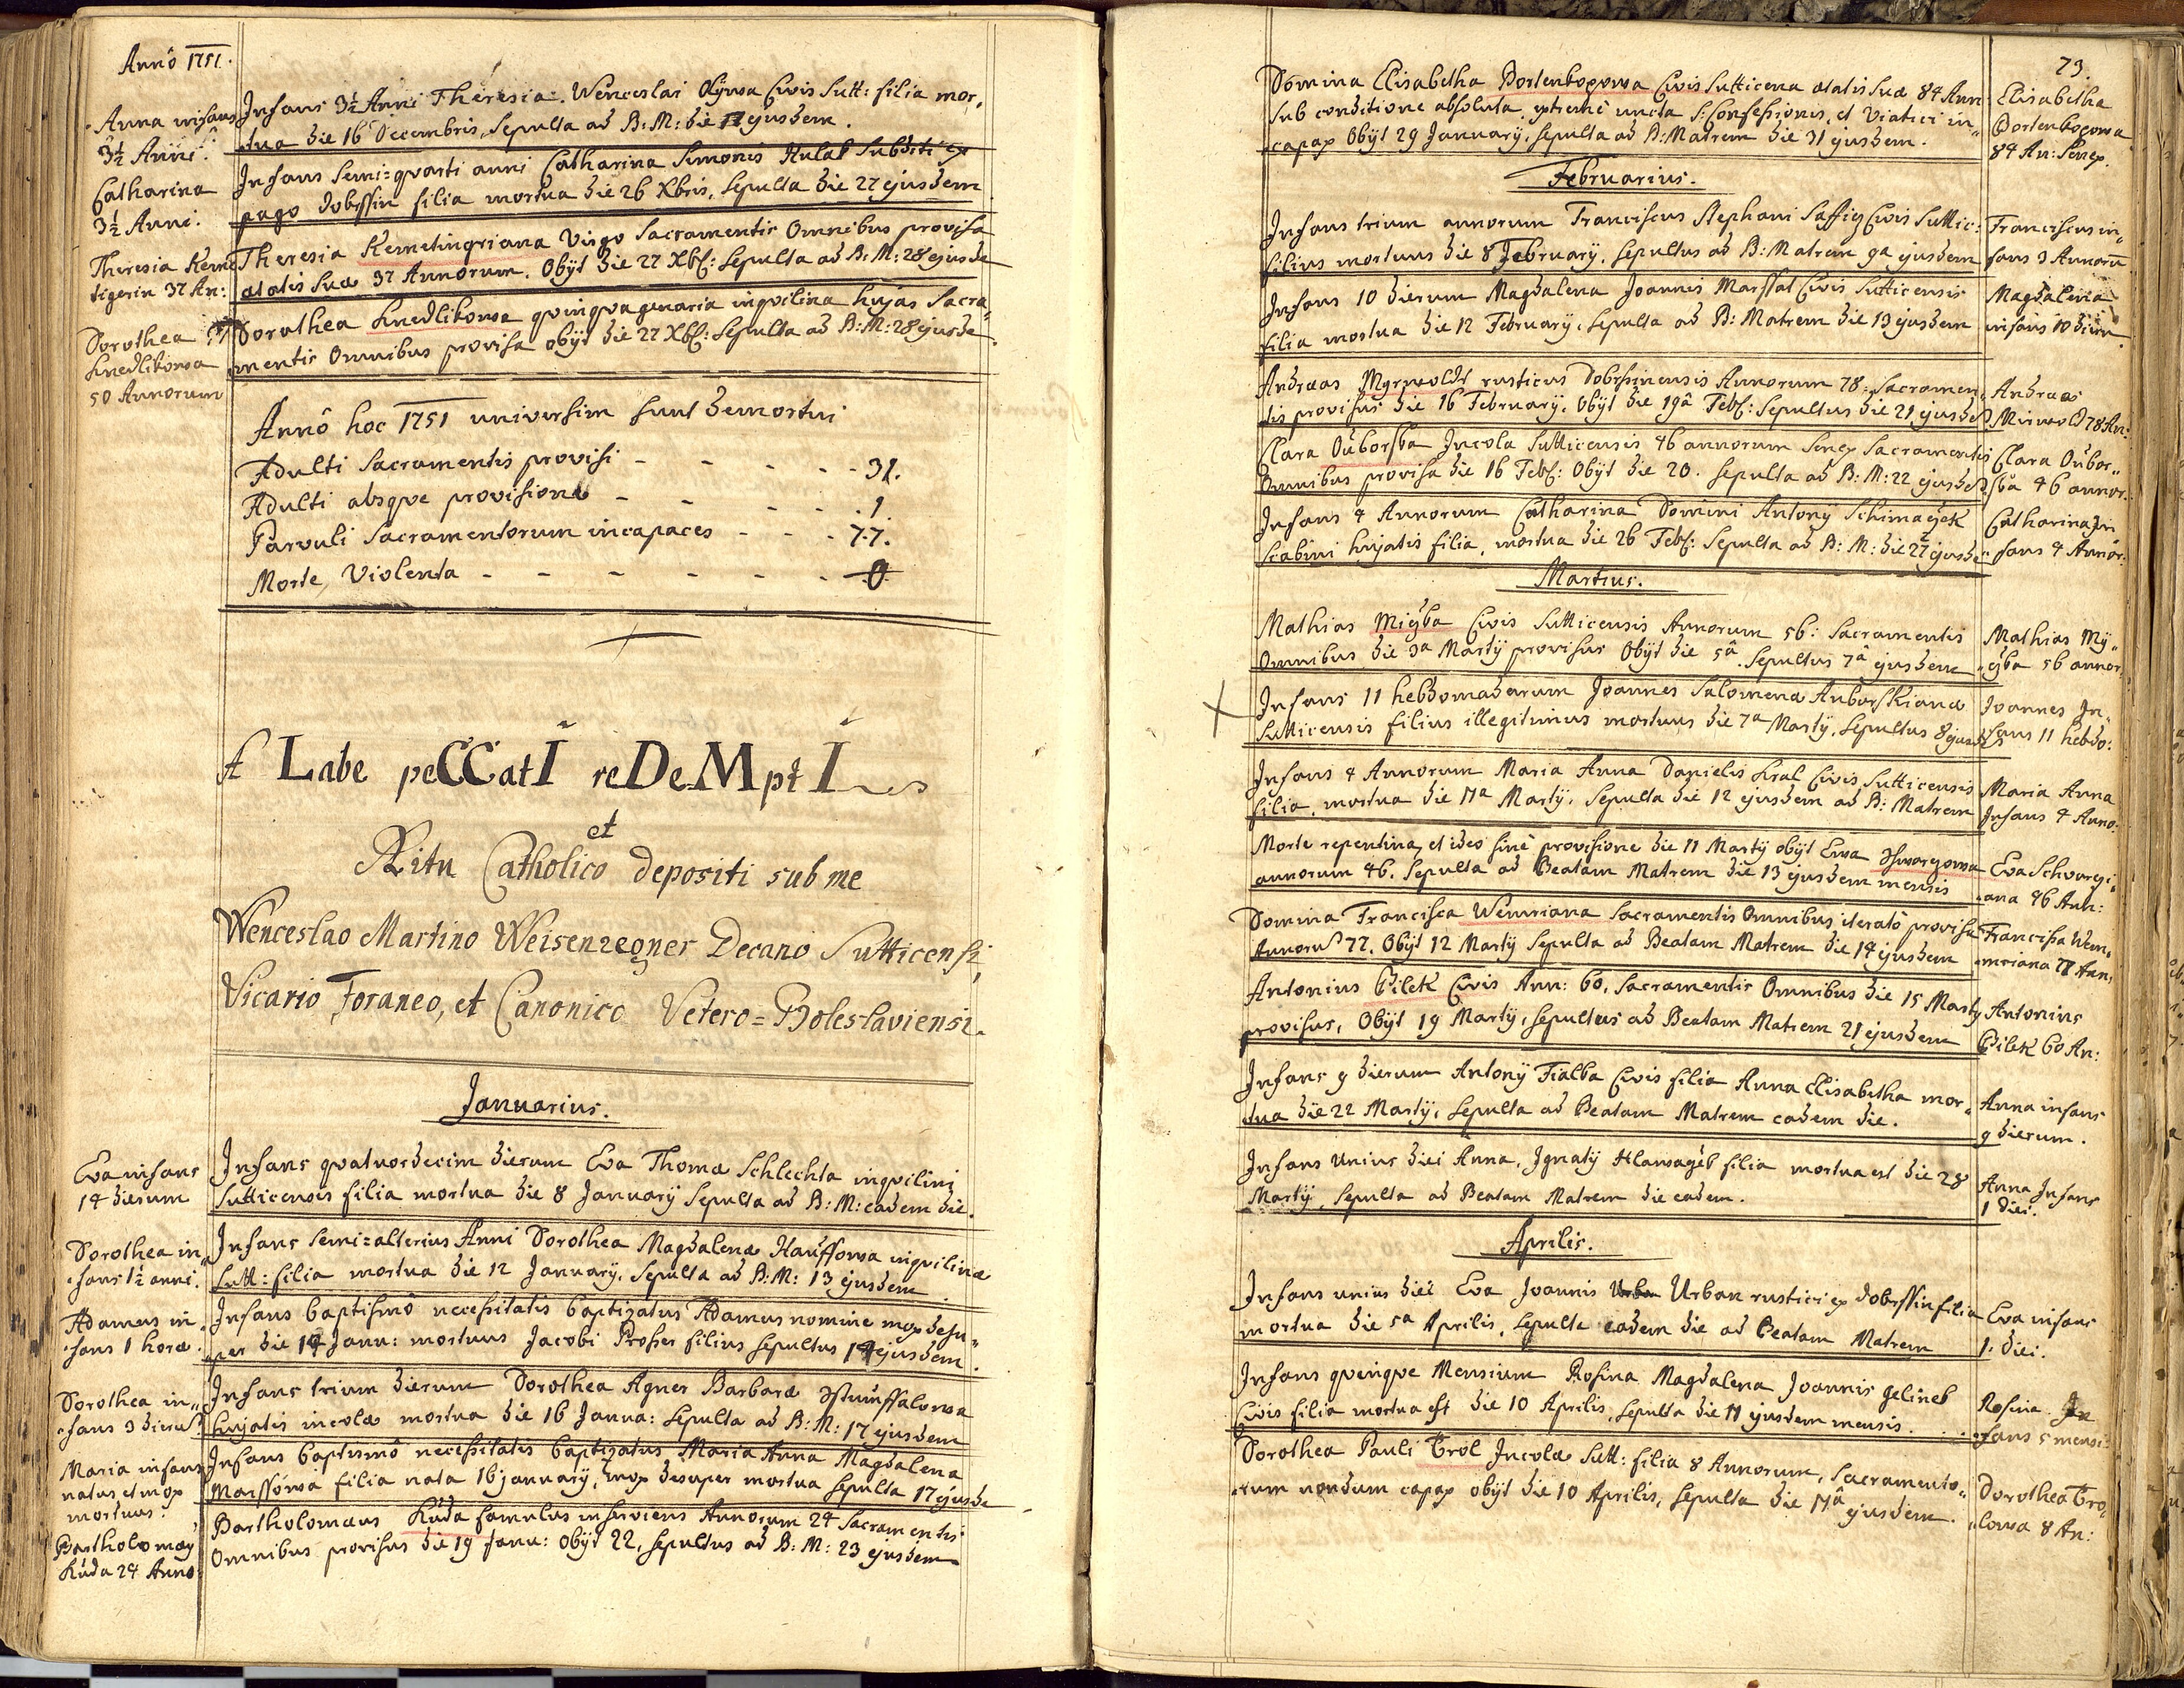 Annô 1751.
Anna infans
3½ Anni.
Infans 3½ Anni Theresia. Wenceslai Civis Sutt: filia mor,,
tua die 16 Decembris, Sepulta ad B: M: die 17 ejusdem.
Catharina
3½ Anni.
Infans Semi=qvarti anni Catharina Simonis Subditi ex
pago Dobrssin filia mortua die 26 Xbris, Sepulta die 27 ejusdem
Theresia Keme
tigerin 37 An:
Theresia Kemetingriana Virgo Sacramentis Omnibus provisa
ætatis Suæ 37 Annorum. Obijt die 27 Xbr: Sepulta ad B: M: 28 ejusde
Dorothea
Knedlikowa
50 Annorum
Dorothea Knedlikowa qvinqvagenaria inqvilina hujas Sacra,,
mentis Omnibus provisa obijt die 27 Xbr: Sepulta ad B: M: 28 ejusde
Annô hoc 1751 universim sunt demortui
Adulti Sacramentis provisi - - - - - 31.
Adulti absqve provisione - - - - 1.
Parvuli Sacramentorum incapaces - - - 77.
Morte Violenta - - - - - - 0
A Labe peCCatI reDeMptI
et
Ritu Catholico depositi sub me
Wenceslao Martino Weisenregner Decano Sutticensi,
Vicario Foraneo, et Canonico Vetero=Boleslaviensi.
Januarius.
Eva infans
14 dierum
Infans qvatuordecim dierum Eva Thomæ Schlechta inqvilini
Sutticensis filia mortua die 8 Januarij Sepulta ad B: M: eadem die.
Dorothea in,,
fans 1½ anni.
Infans Semi=alterius Anni Dorothea Magdalenæ Haüssowa inqvilinæ
Sutt: filia mortua die 12 Januarij, Sepulta ad B: M: 13 ejusdem
Adamus in,,
fans 1 horæ.
Infans baptismô necessitatis baptizatus Adamus nomine mox desu,,
per die 14 Janu: mortuus Jacobi Proßer filius sepultus 14 ejusdem.
Dorothea in,,
fans 3 dieru
Infans trium dierum Dorothea Agnes Barbaræ
hujatis incolæ mortua die 16 Janua: Sepulta ad B: M: 17 ejusdem
Maria infans
natus et mox
mortuus.
Infans baptismô necessitatis baptizatus Maria Anna Magdalena
Marssowa filia nata 16 januarij, mox desuper mortua sepulta 17 ejusde
Bartholomæy
Kúda 24 Anno
Bartholomæus Kúda famulus inserviens Annorum 24 Sacramentis
Omnibus provisus die 19 Janu: obijt 22, sepultus ad B: M: 23 ejusdem
73.
Domina Elisabetha Dortenkopowa Civis Sutticena ætatis Suæ 84 Ann
sub conditione absoluta, extremè uncta S: Confessionis, et Viatici in,,
capax Obijt 29 Januarij, Sepulta ad B: Matrem die 31 ejusdem.
Elisabetha
Dortenkopowa
84 An: Senex.
Februarius.
Infans trium annorum Franciscus Stephani Saffig Civis Suttic:
filius mortuus die 8 February, sepultus ad B: Matrem 9a ejusdem
Franciscus in,,
fans 3 Annorū
Infans 10 dierum Magdalena Joannis Marssat Civis Sutticensis
filia mortua die 12 February, Sepulta ad B: Matrem die 13 ejusdem
Magdalena
infans 10 dieru
Andreas Myrwoldt rusticus Dobrssinensis Annorum 78. Sacramen,,
tis provisus die 16 February. Obijt die 19â Febr: Sepultus die 21 ejusde
Andreas
Mirwold 78 An:
Clara Ouborska Incola Sutticensis 46 annorum senex Sacramentis
Omnibus provisa die 16 Febr: Obijt die 20. sepulta ad B: M: 22 ejusde
Clara Oubor,,
ska 46 annor:
Infans 4 Annorum Catharina Domini Antonij Schimaczek
Scabini hujatis filia, mortua die 26 Febr: Sepulta ad B: M: die 27 ejusde
Catharina In
fans 4 Annor:
Martius.
Mathias Migka Civis Sutticensis Annorum 56: Sacramentis
Omnibus die 3a Martij provisus Obijt die 5â. Sepultus 7â ejusdem
Mathias My,,
gka 56 annor:
Infans 11 hebdomadarum Joannes Salomenæ Auborskianæ
Sutticensis filius illegitimus mortuus die 7a Martij, Sepultus 8 ejusde
Joannes In,,
fans 11 hebdo:
Infans 4 Annorum Maria Anna Danielis Kral Civis Sutticensis
filia, mortua die 11a Martij, Sepulta die 12 ejusdem ad B: Matrem
Maria Anna
Infans 4 Anno:
Morte repentina, et ideo sine provisione die 11 Martij obijt Ewa Schwargowa
annorum 46. Sepulta ad Beatam Matrem die 13 ejusdem mensis
Eva Schwargi,,
ana 46 Ann:
Domina Francisca Wemriana Sacramentis Omnibus iterato provisa
Annoru 77. Obijt 12 Martij Sepulta ad Beatam Matrem die 14 ejusdem
Francisca Wem,,
mriana 77 Ann,
Antonius Pilek Civis Ann: 60, Sacramentis Omnibus die 15 Marty
provisus, Obijt 19 Martij, sepultus ad Beatam Matrem 21 ejusdem
Antonius
Pilek 60 An:
Infans 9 dierum Antonij Fialka Civis filia Anna Elisabetha mor,,
tua die 22 Martij, sepulta ad Beatam Matrem eadem die.
Anna infans
9 dierum.
Infans Unius diei Anna, Ignatij Hlawagek filia mortua est die 28
Martij, Sepulta ad Beatam Matrem die eadem.
Anna Infans
1 diei.
Aprilis.
Infans unius diei Eva Joannis Urban rustici ex Dobrssin filia
mortua die 5a Aprilis, sepulta eadem die ad Beatam Matrem
Eva infans
1. diei.
Infans qvinqve Mensium Rosina Magdalena Joannis Gelinek
Civis filia mortua est die 10 Aprilis, sepulta die 11 ejusdem mensis.
Rosina In
fans 5 mensi:
Dorothea Pauli Krol Incolæ Sutt: filia 8 Annorum, Sacramento,,
rum nondum capax obijt die 10 Aprilis, sepulta die 11â ejusdem.
Dorothea Kro,,
lowa 8 An: